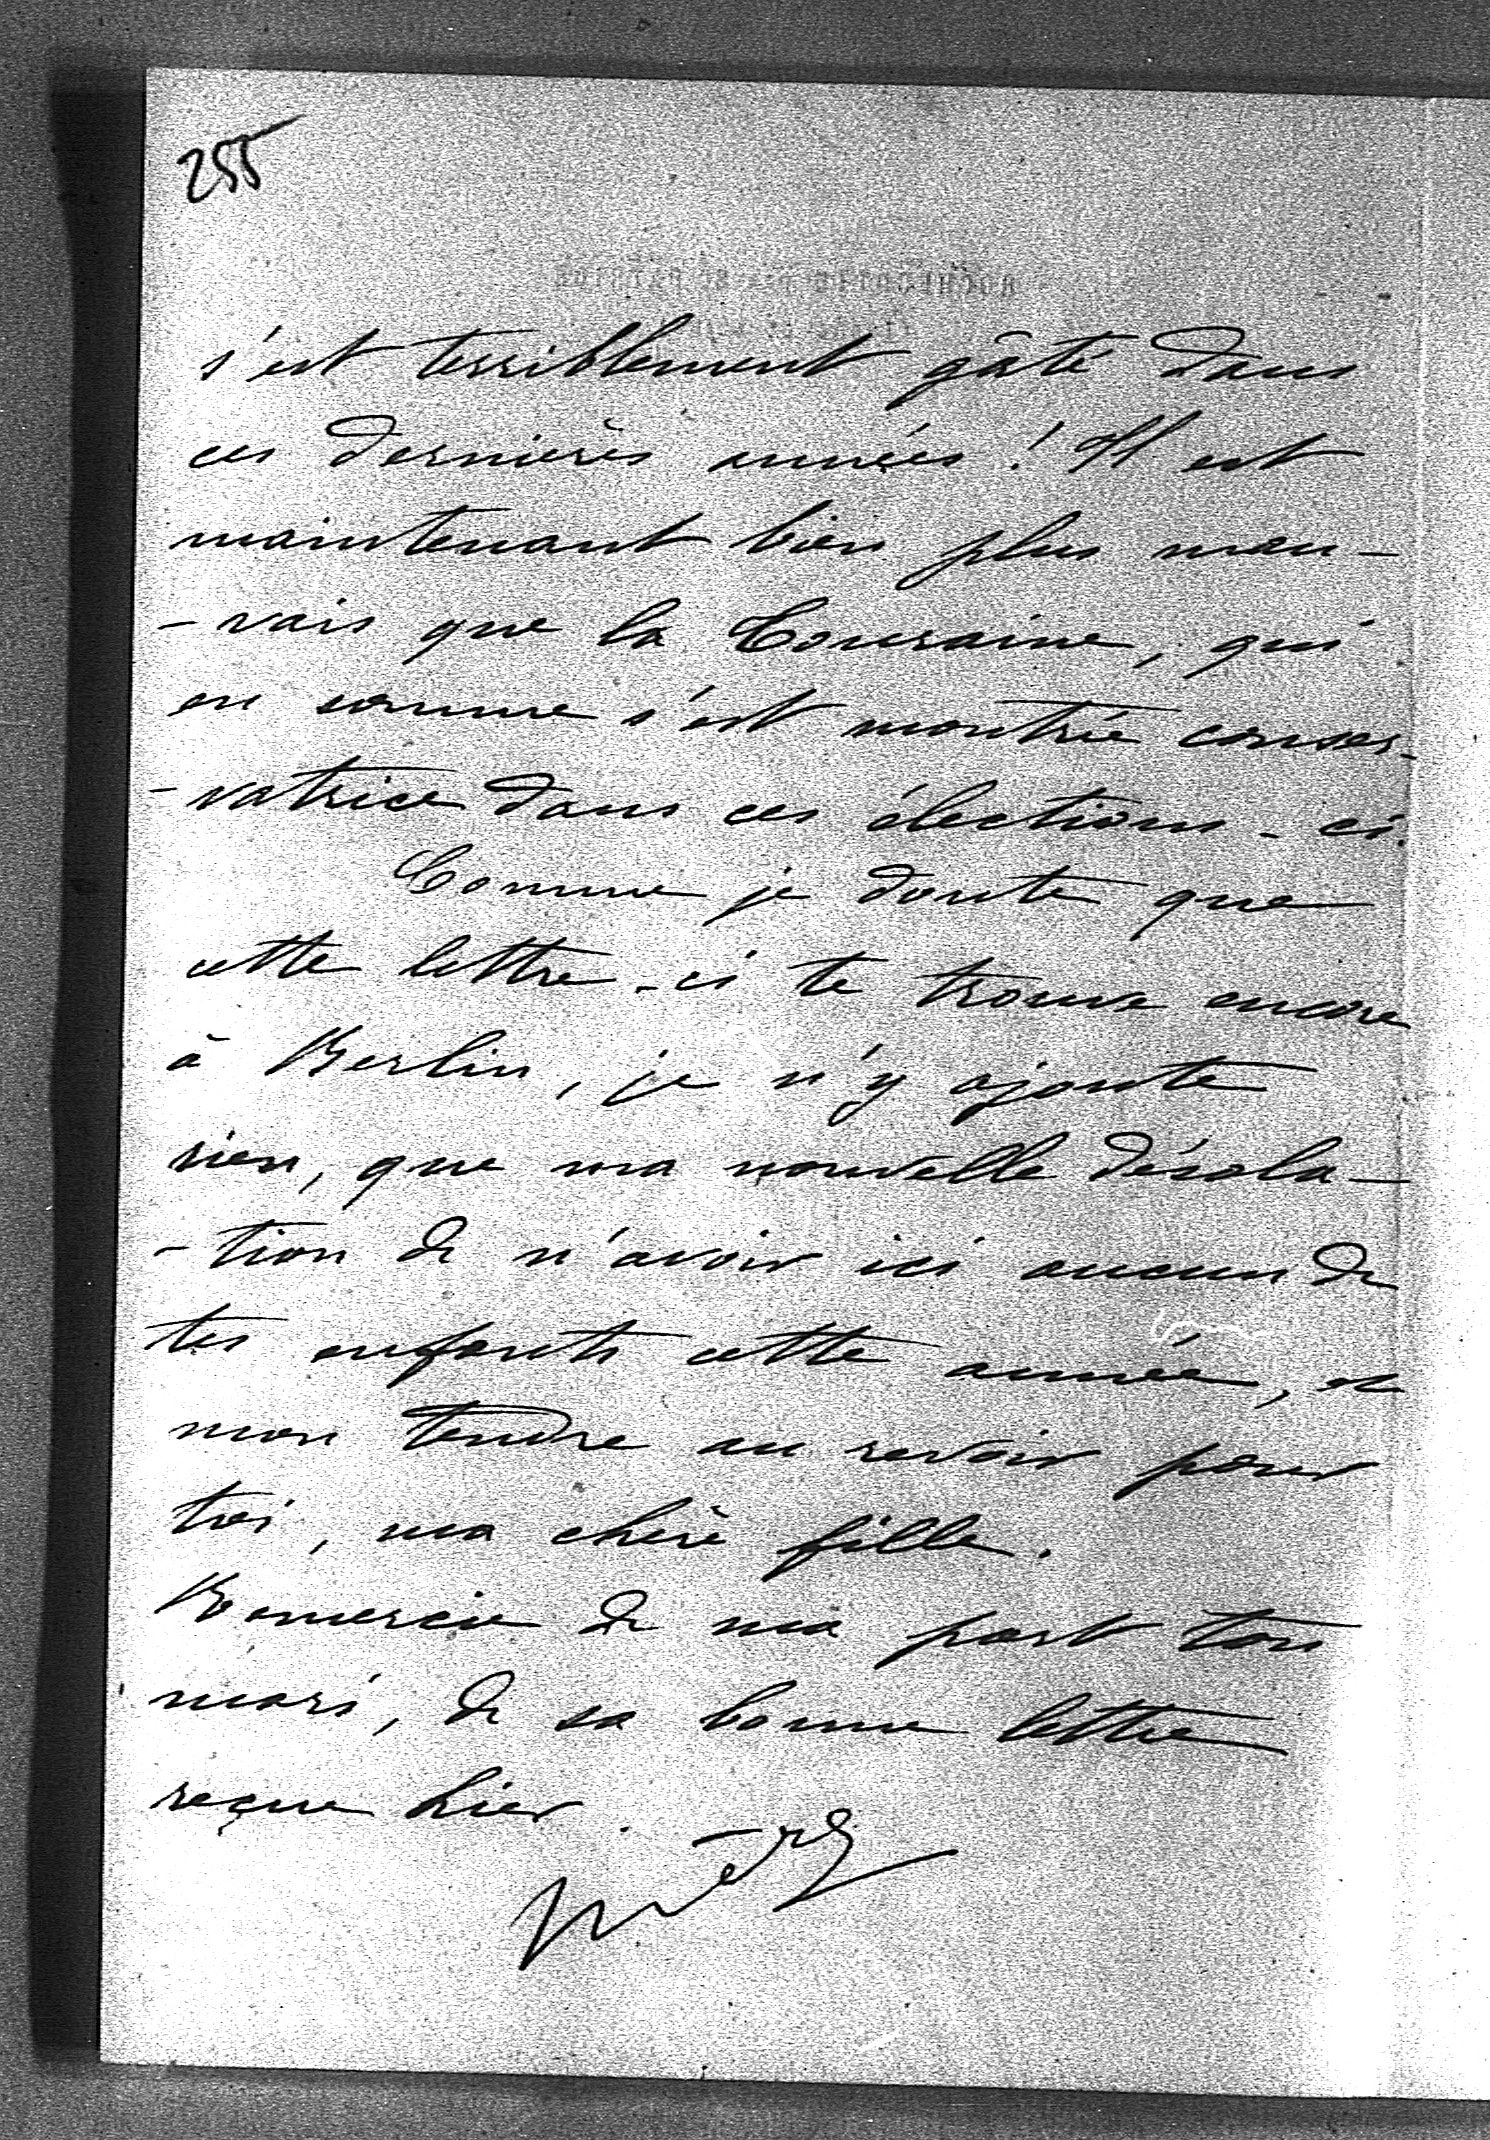 255
s'est terriblement gâté dans
ces dernières années ! Il est
maintenant bien plus mau-
-vais que la Touraine, qui
en somme s'est montrée conser-
-vatrice dans ces élections-ci.
Comme je doute que
cette lettre-ci te trouve encore
à Berlin, je n'y ajoute
rien, que ma nouvelle désola-
-tion de n'avoir ici aucun de
tes enfants cette année, et
mon tendre au revoir pour
toi, ma chère fille.
Remercie de ma part ton
mari, de sa bonne lettre
reçue hier.